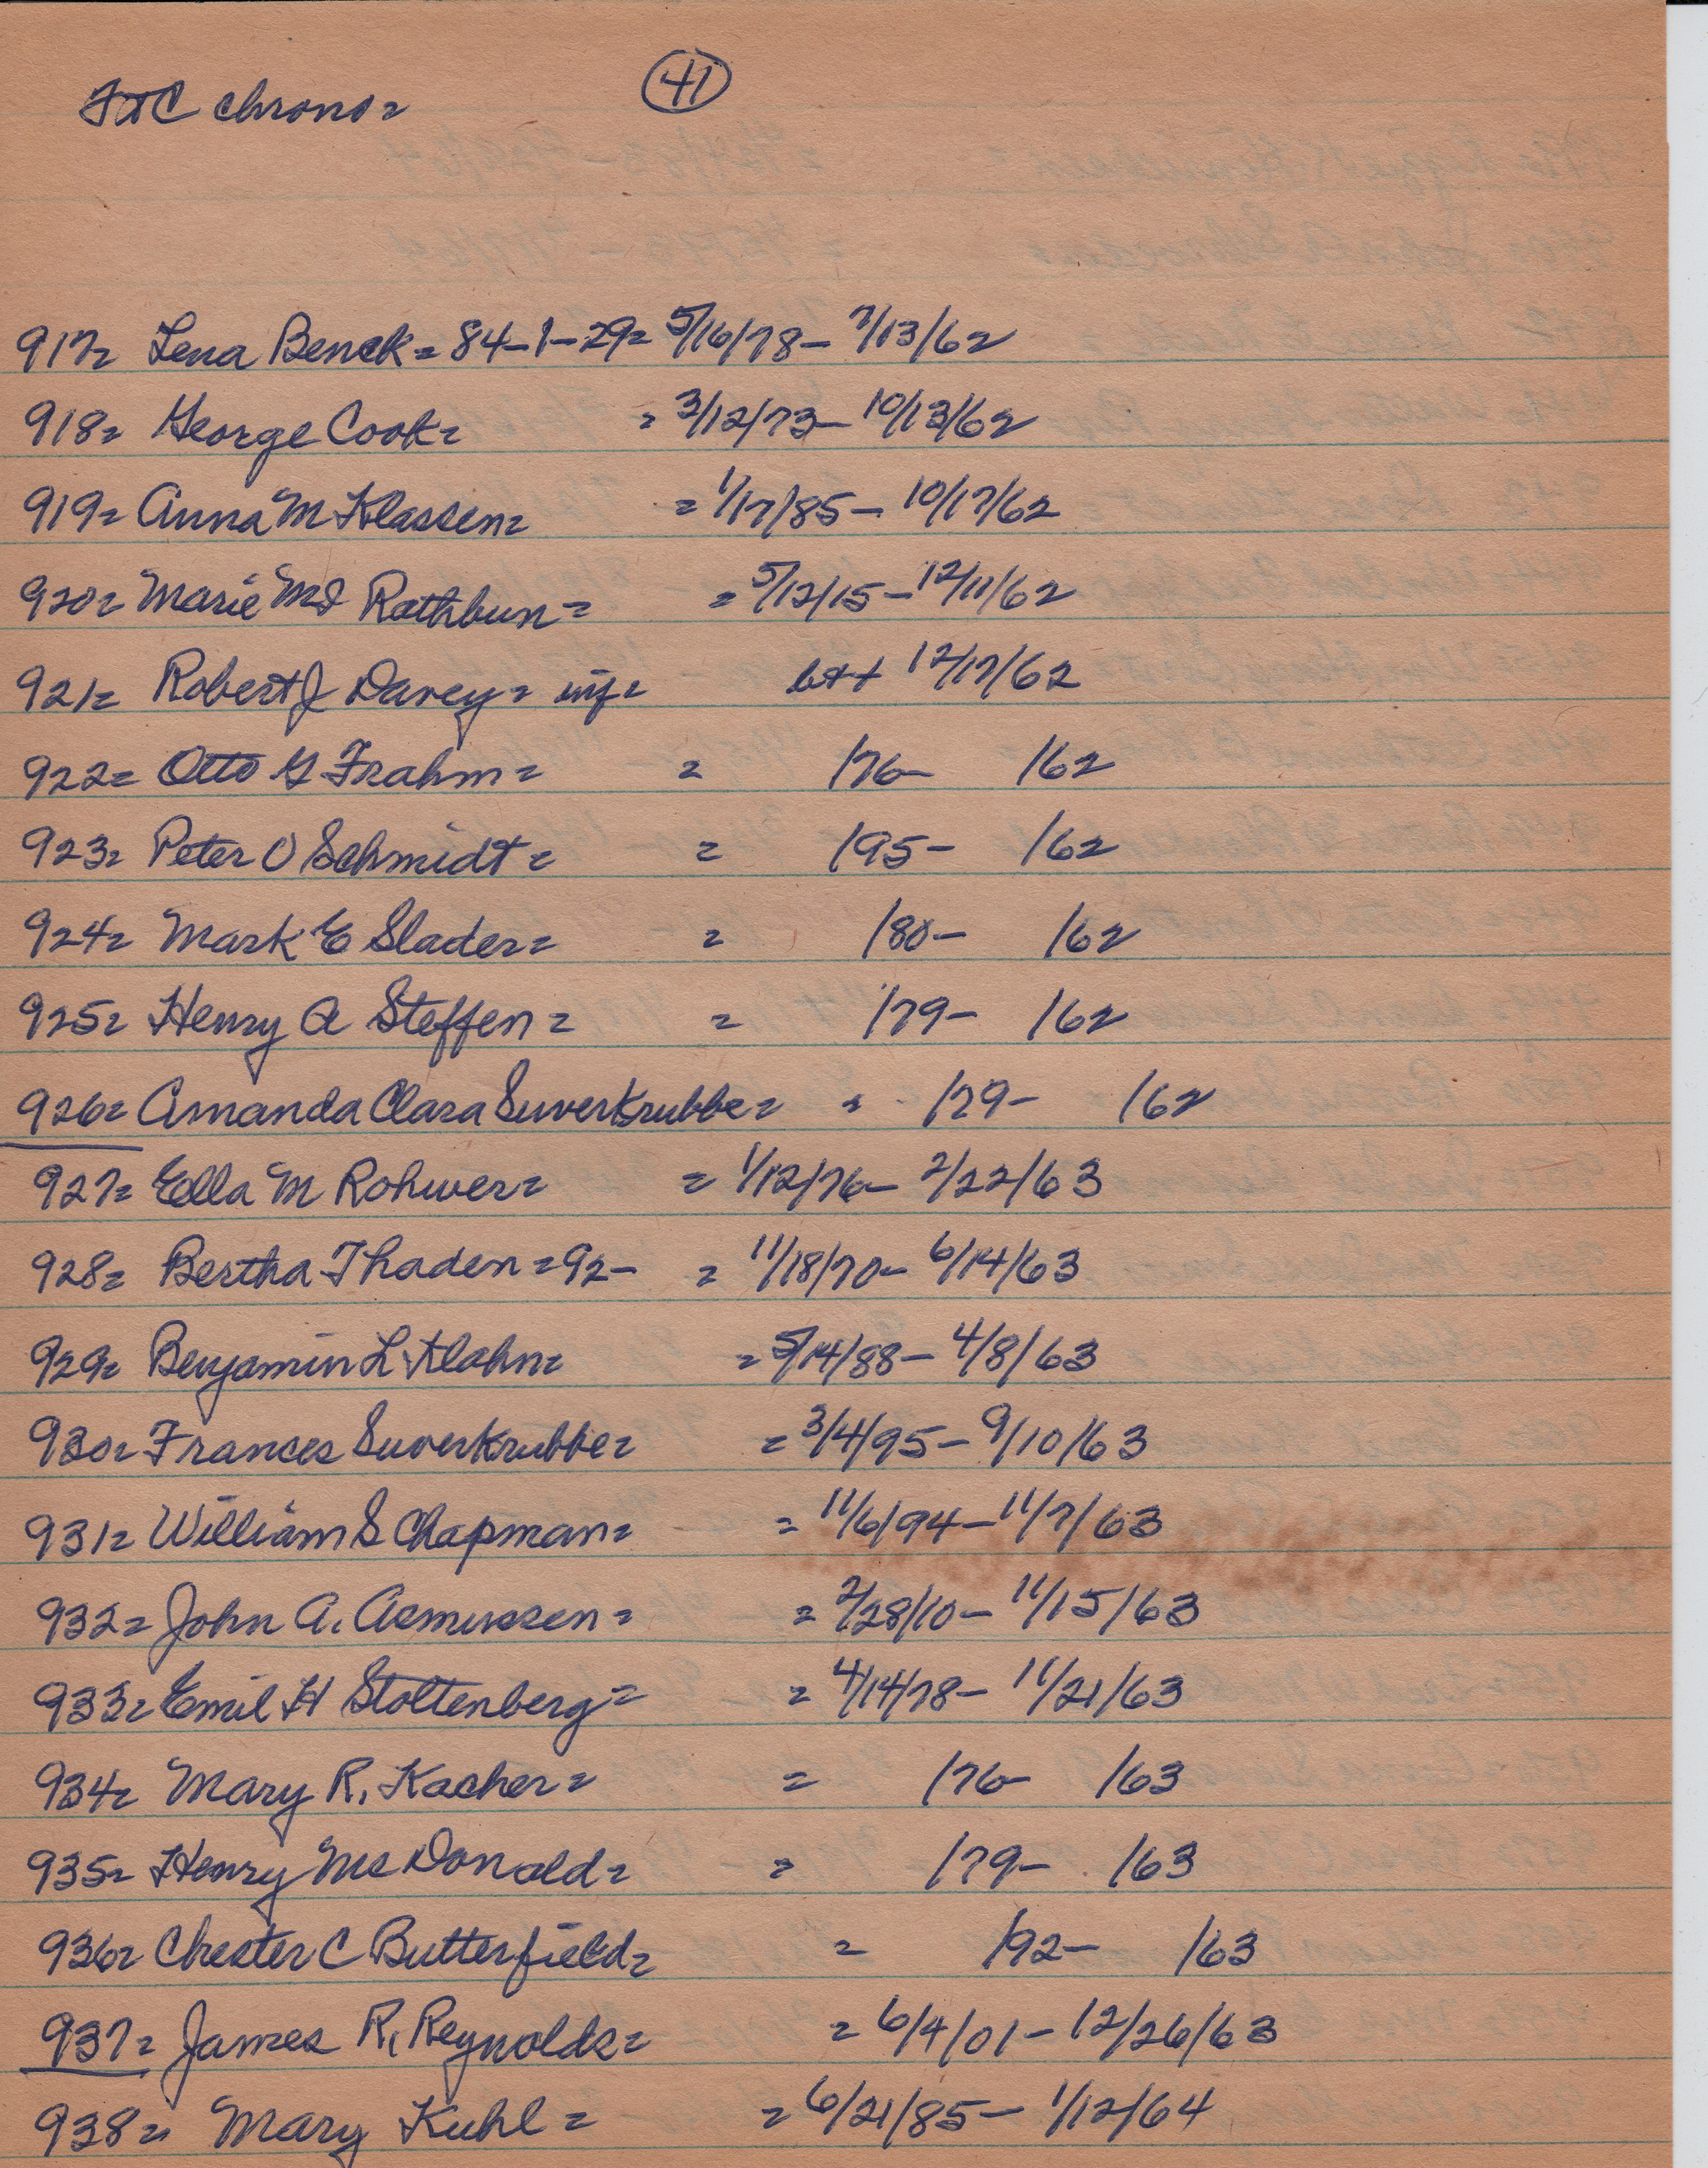 (41)
FTC chrono=
917= Lena Benck= 84-1-29= 5/16/78- 7/13/62
918= George Cook= = 3/12/73- 10/13/62
919= Anna M Klassen= = 1/17/85- 10/17/62
920= Marie M Rathbun= = 5/12/15- 12/11/62
921= Robert J Davey= inf= b++ 12/17/62
922= Otto G Frahm= = /76- /62
923= Peter O Schmidt= = /95- /62
924= Mark E Slader= = /80- /62
925= Henry A Steffen= = /79- /62
926= Amanda Clara Suverkrubbe= = /79- /62
927= Ella M Rohwer= = 1/12/76- 2/22/63
928= Bertha Thaden=92- = 11/18/70- 6/14/63
929= Benjamin L Klahn= = 5/14/88- 4/8/63
930= Frances Suverkrubbe= = 3/4/95- 9/10/63
931= William S Chapman= = 11/6/94- 11/7/63
932= John A. Asmussen= = 2/28/10- 11/15/63
933= Emil H Stoltenberg= = 4/14/78- 11/21/63
934= Mary R. Kacher= = /76- /63
935= Henry McDonald= = /79- /63
936= Chester C Butterfield= = /92- /63
937= James R. Reynolds= = 6/4/01- 12/26/63
938= Mary Kuhl= = 6/21/85- 1/12/64